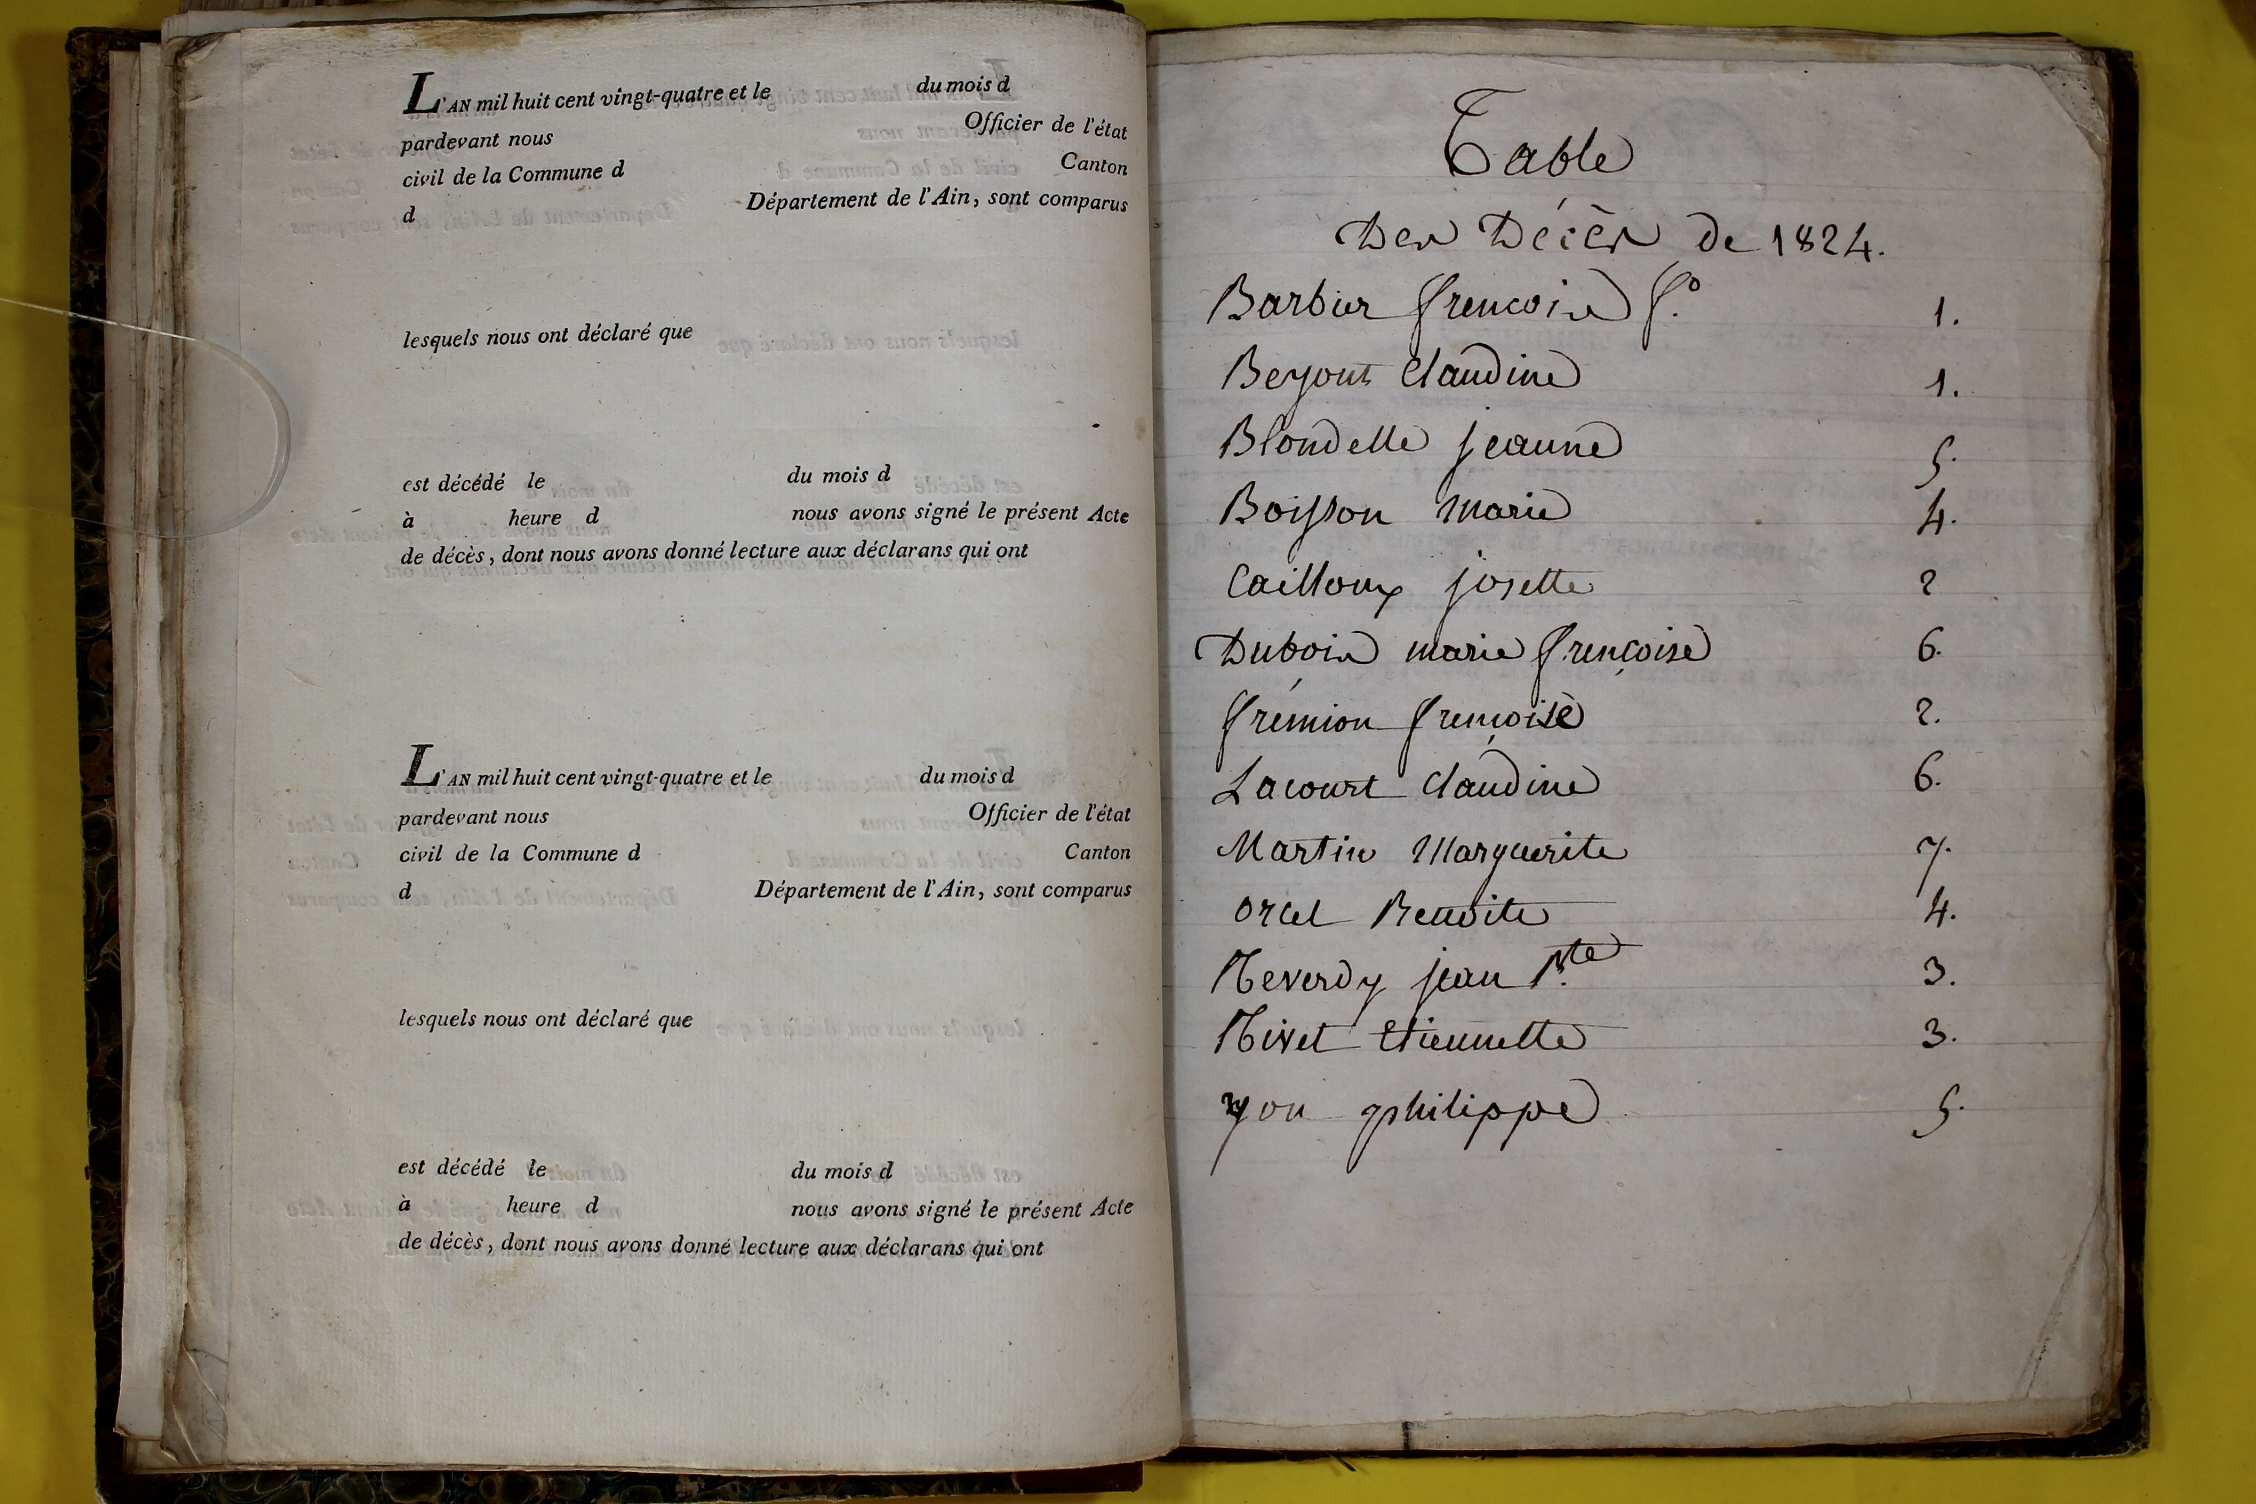 L'AN mil huit cent vingt-quatre et le du mois d
pardevant nous Officier de l'état
civil de la Commune d Canton
d Département de l'Ain, sont comparus
lesquels nous ont déclaré que
est décédé le du mois d
à heure d nous avons signé le présent Acte
de décès, dont nous avons donné lecture aux déclarans qui ont
L'AN mil huit cent vingt-quatre et le du mois d
pardevant nous Officier de l'état
civil de la Commune d Canton
d Département de l'Ain, sont comparus
lesquels nous ont déclaré que
est décédé le du mois d
à heure d nous avons signé le présent Acte
de décès, dont nous avons donné lecture aux déclarans qui ont
Table
Des Décès de 1824.
Barbier frencois 1.
Beyout Claudine 1.
Blondelle jeanne 5.
Boisson Marie 4.
Cailloux josette 2
Dubois marie frençoise 6.
frémion frençoise 2.
Lacourt Claudine 6.
Martin Marguerite 7.
Orcel Benoite 4.
Reverdy jean Bte 3.
Rivet Etiennette 3.
yon philippe 5.